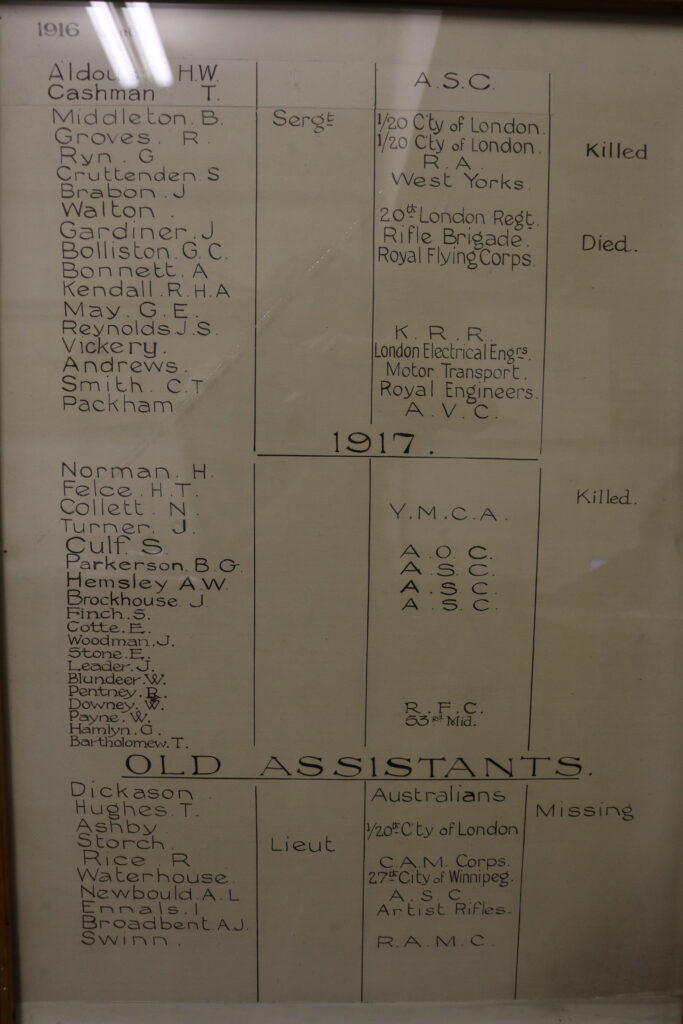 1916
Aldous H.W. A.S.C.
Cashman T.
Middleton. B. Sergt 1/20 City of London.
Groves. R. 1/20 City of London. Killed
Ryn. G R.A.
Cruttenden. S West Yorks.
Brabon. J
Walton. 20th London Regt.
Gardiner. J Rifle Brigade. Died.
Bolliston. G. C. Royal Flying Corps.
Bonnett. A
Kendall. R.H.A
May. G. E.
Reynolds J.S. K. R. R.
Vickery. London Electrical Engrs.
Andrews. Motor Transport.
Smith. C.T Royal Engineers.
Packham A.V.C.
1917.
Norman. H.
Felce. H.T. Killed.
Collett. N. Y.M.C.A.
Turner. J.
Culf. S. A.O.C.
Parkerson. B.G. A.S.C.
Hemsley A.W. A.S.C.
Brockhouse J A.S.C.
Finch. S.
Cotte. E.
Woodman. J.
Stone. E.
Leader. J.
Blundeer. W.
Pentney. R.
Downey. W. R.F.C.
Payne. W. Mid.
Hamlyn. G.
Bartholomew. T.
OLD ASSISTANTS.
Dickason Australians
Hughes. T. Missing
Ashby. 1/20th City of London
Storch. Lieut
Rice. R C.A.M. Corps.
Waterhouse. 27th City of Winnipeg.
Newbould. A. L A.S.C
Ennals. I Artist Rifles.
Broadbent. A.J.
Swinn. R.A.M.C.